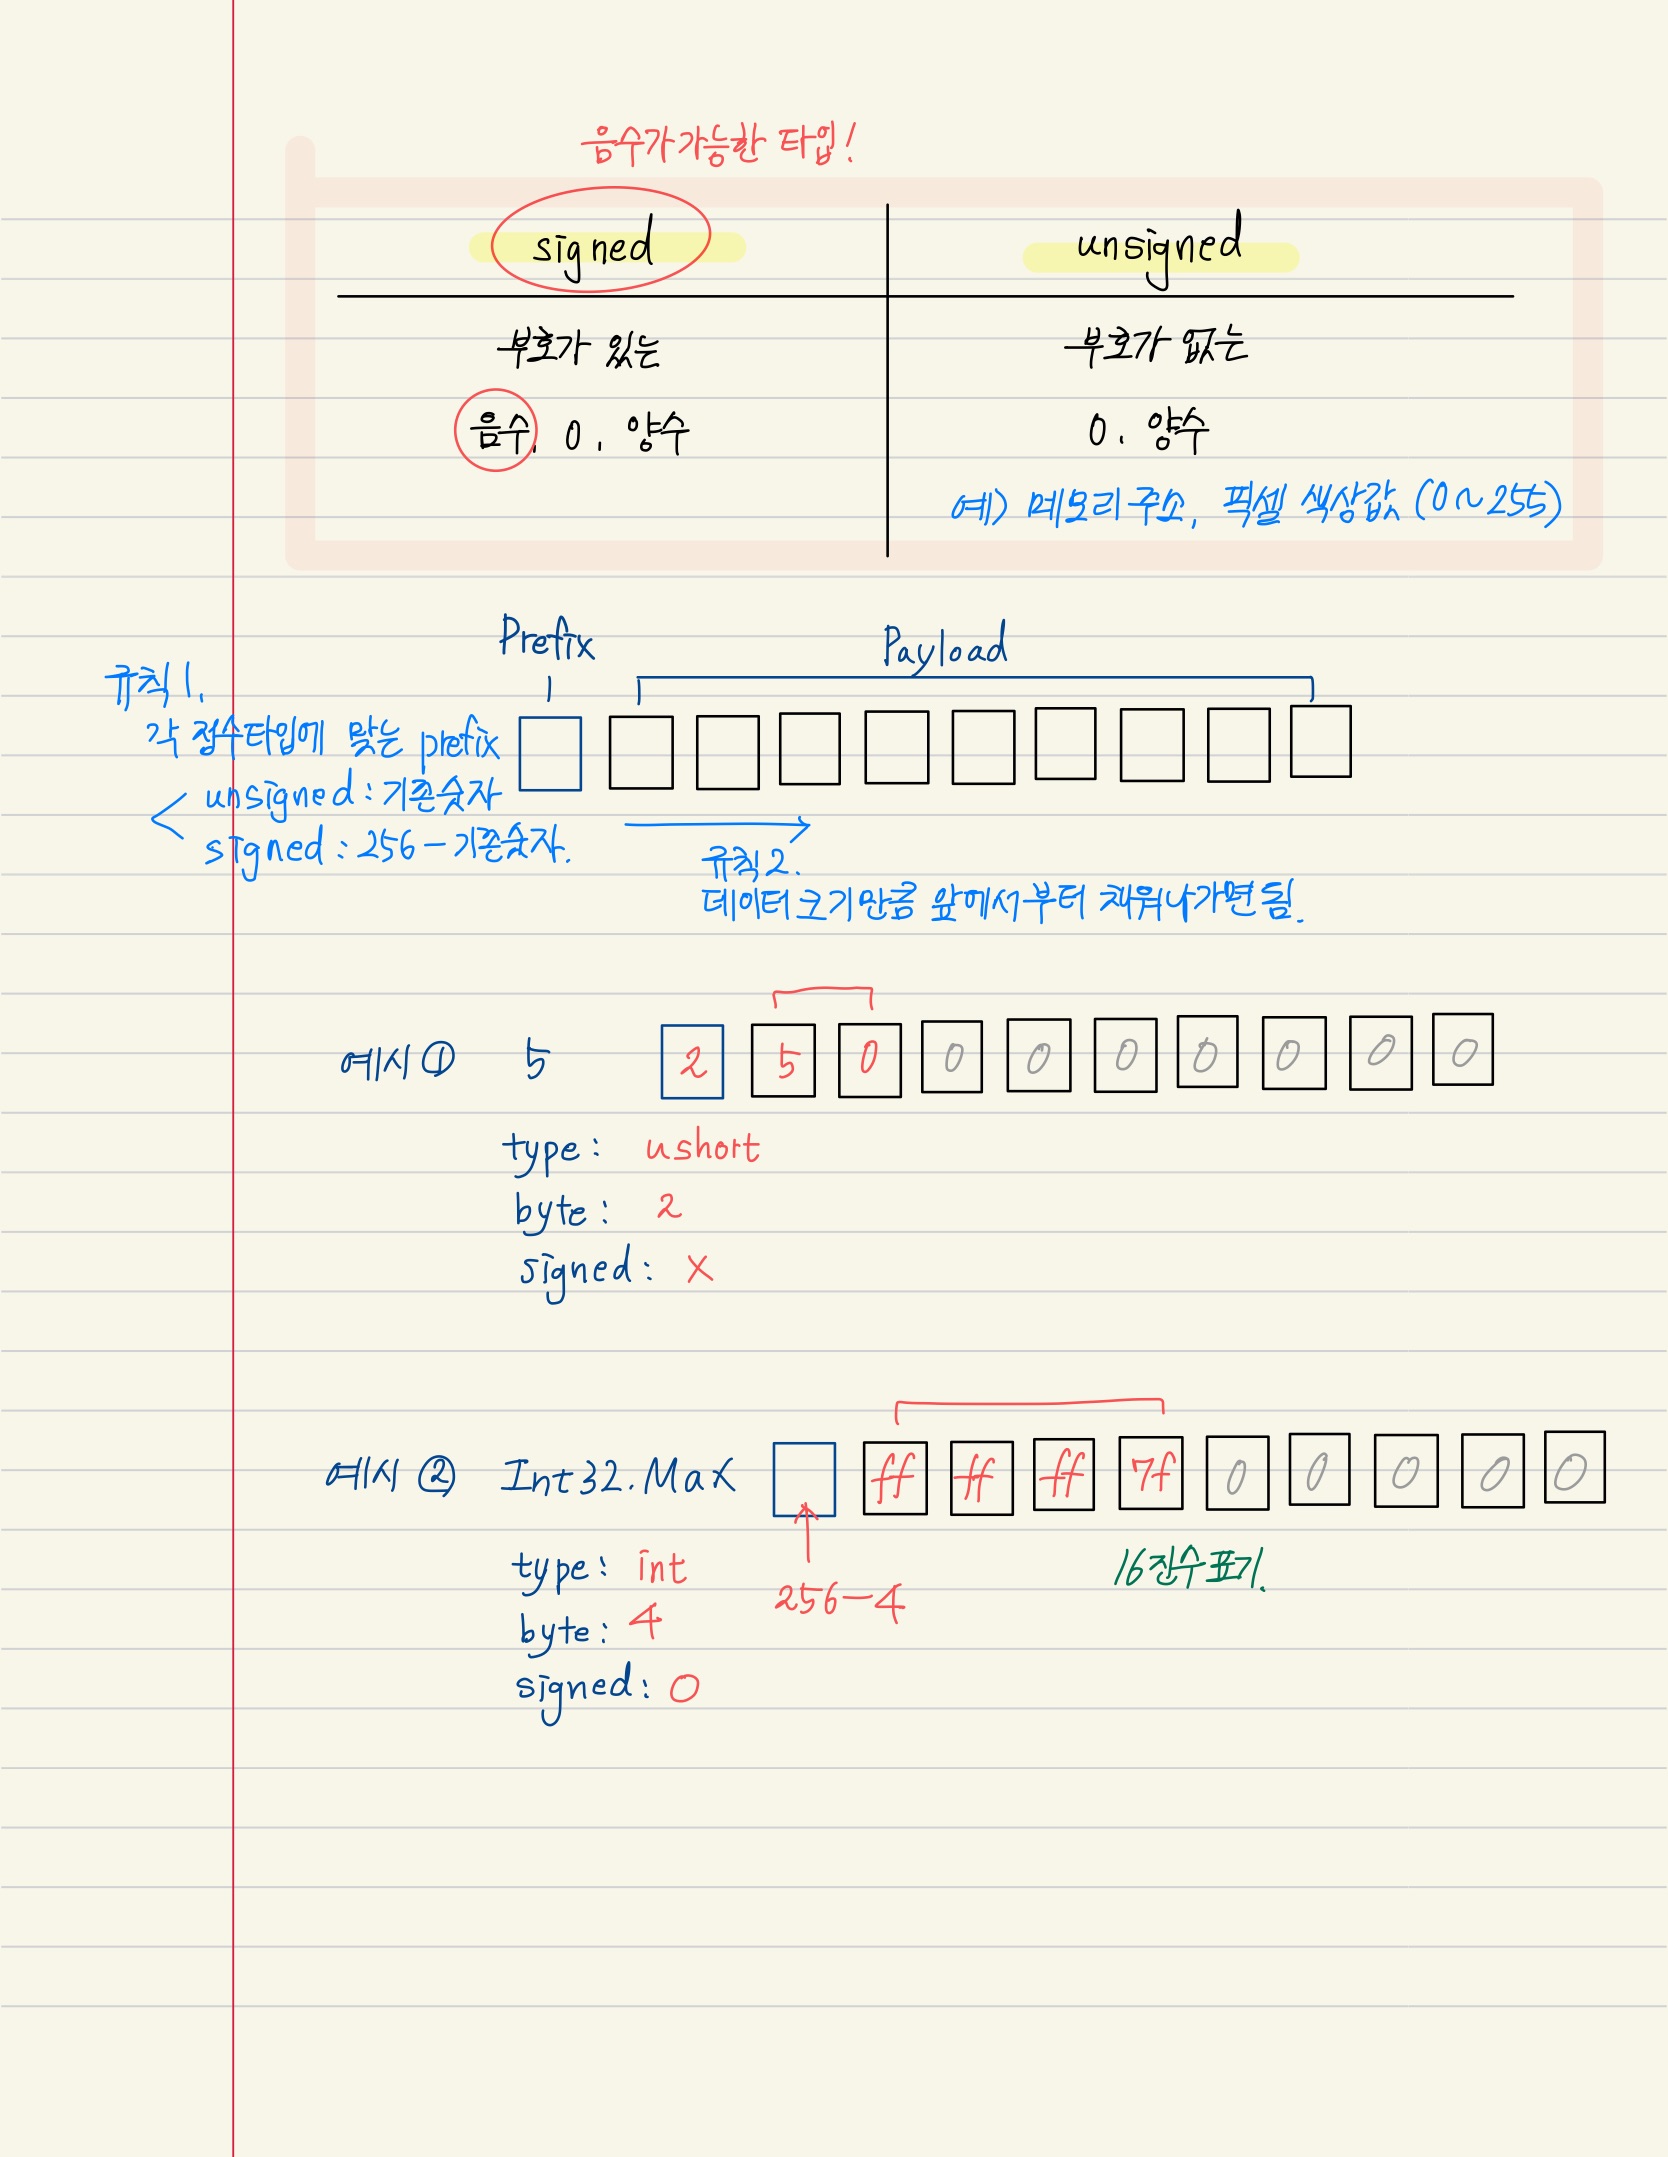 음수가 가능한 타입!
signed
unsigned
부호가 있는
부호가 없는
음수, 0, 양수
0, 양수
예) 메모리 주소, 픽셀 색상값 (0~255)
Prefix
Payload
규칙 1.
각 정수타입에 맞는 prefix
unsigned : 기존숫자
signed : 256-기존숫자.
규칙 2.
데이터 크기만큼 앞에서부터 채워나가면 됨.
예시 ① 5 2 5 0 0 0 0 0 0 0 0
type: ushort
byte: 2
signed: X
예시 ② Int32.Max ff ff ff 7f 0 0 0 0 0
type: int
256-4
16진수 표기.
byte: 4
signed: O